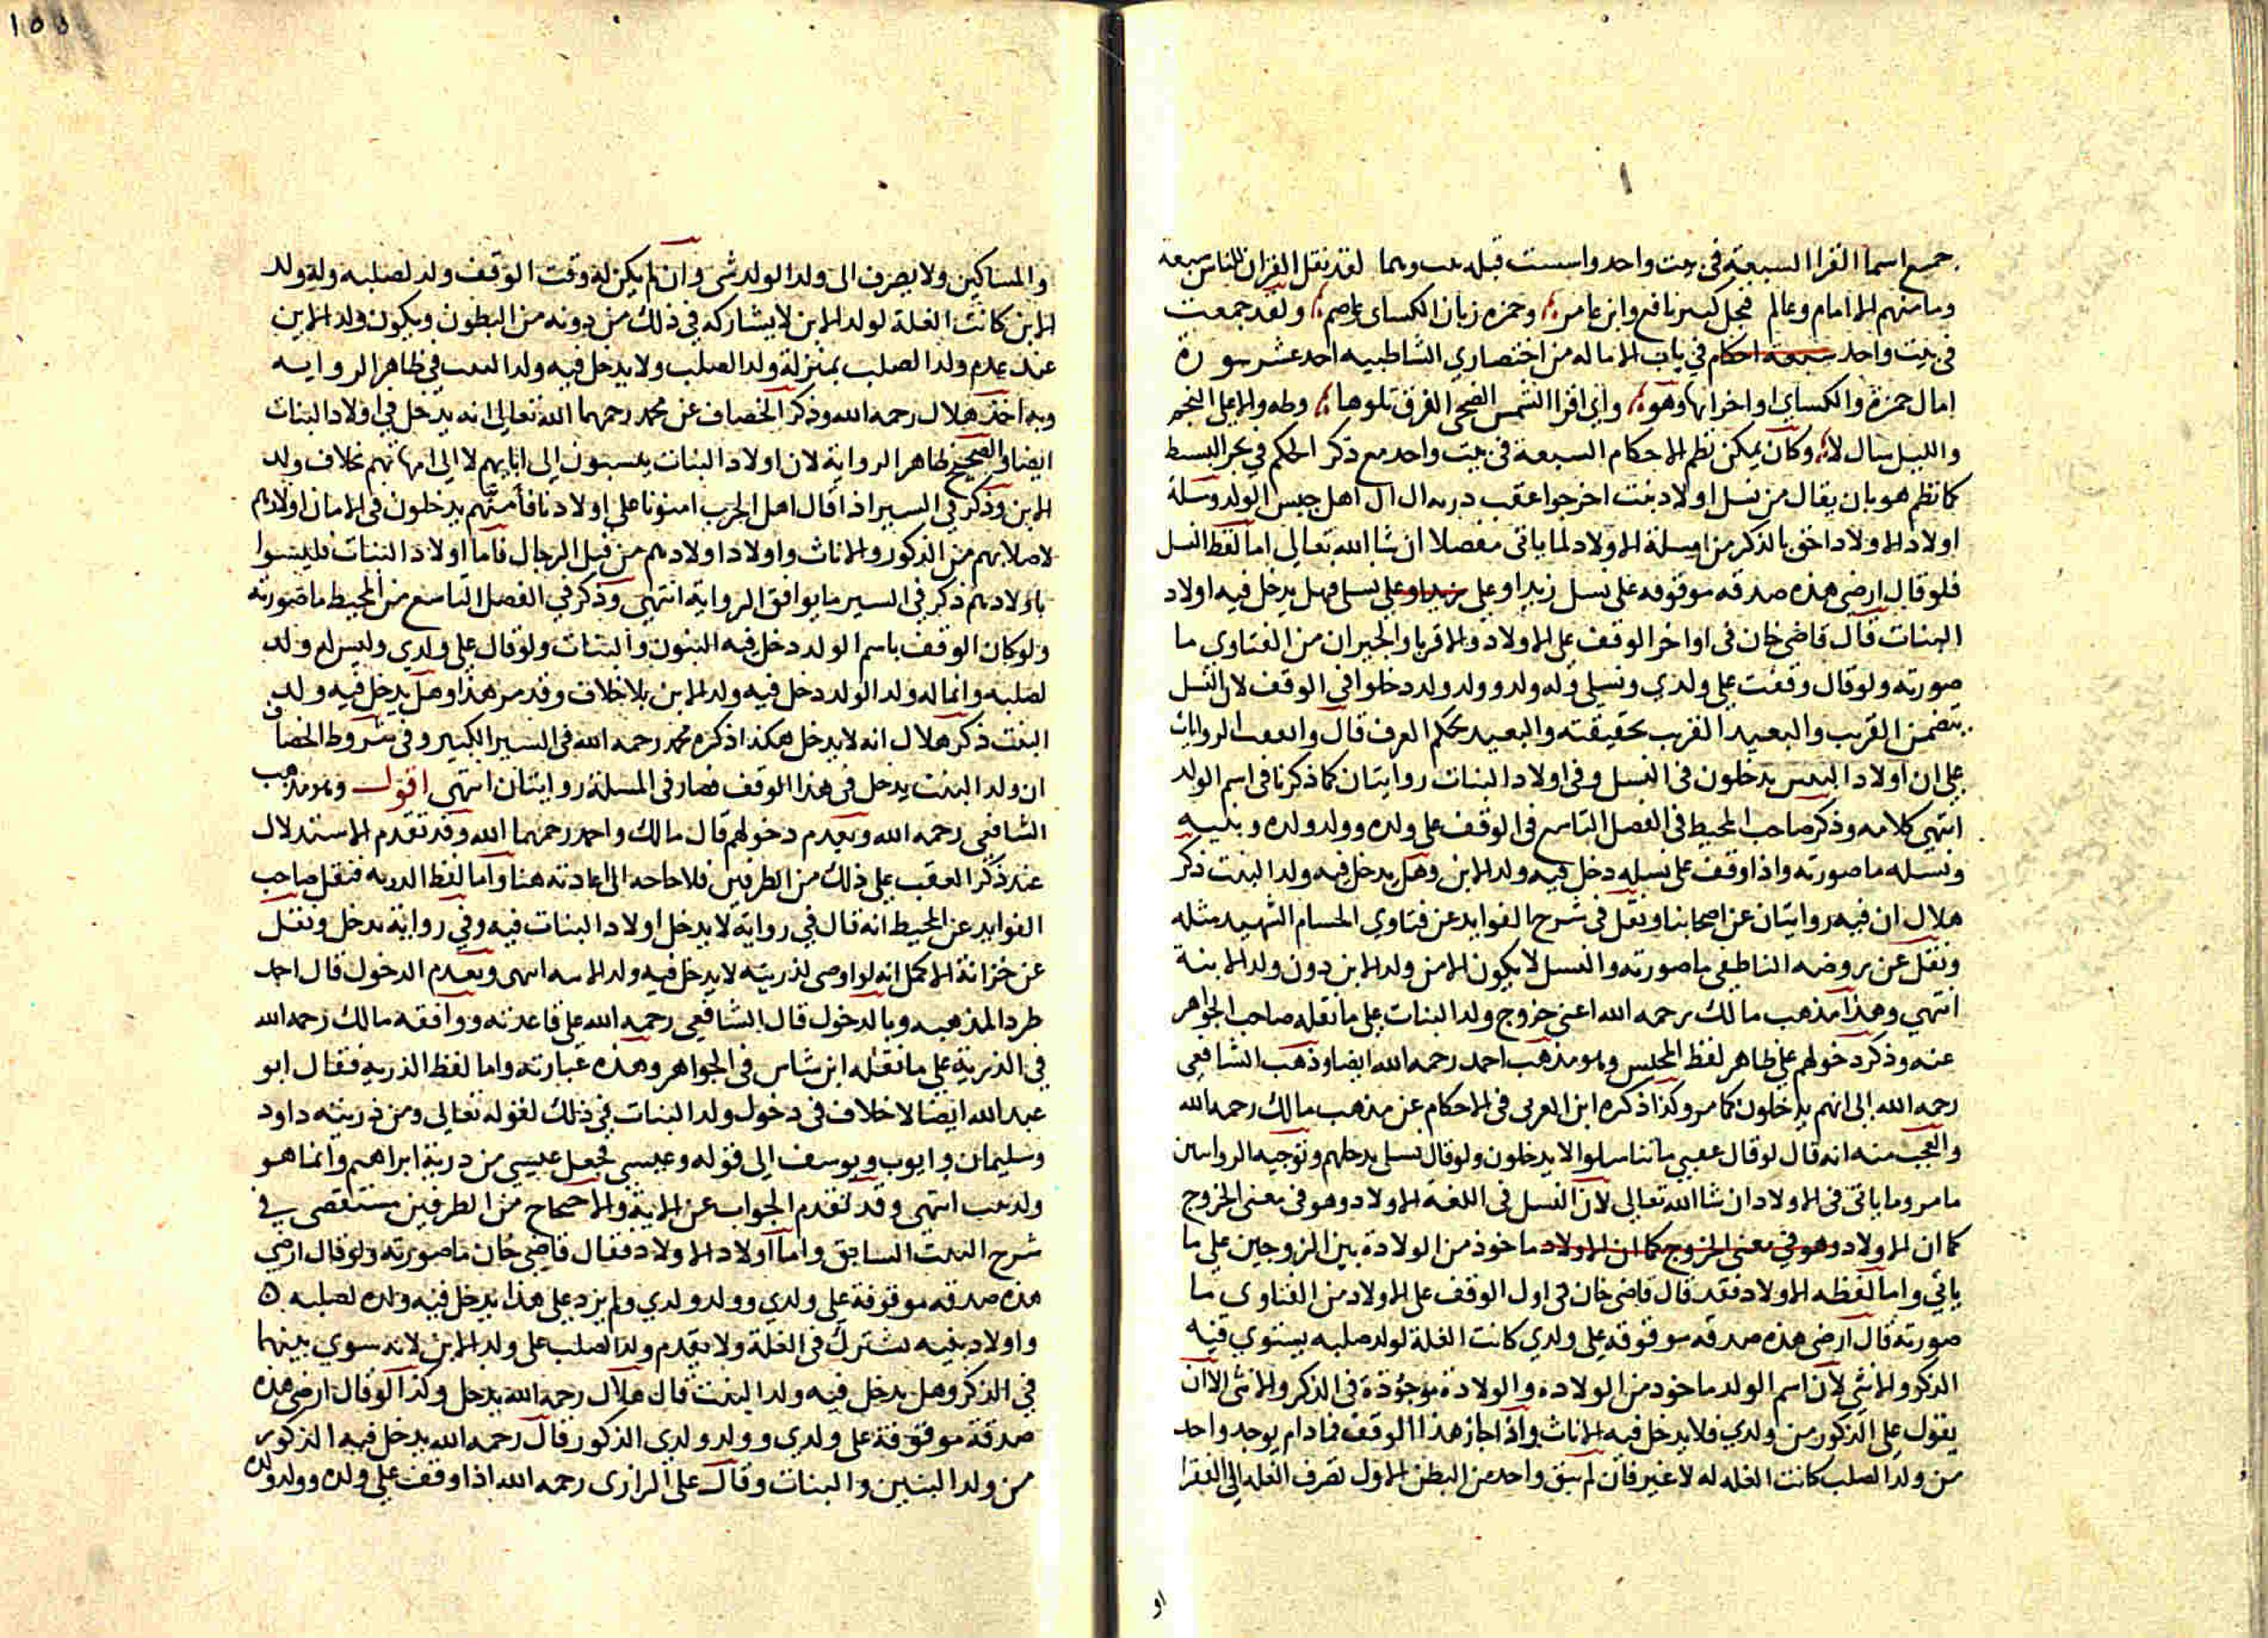 جمع اسما القرا السبعة في بيت واحد واسست قبله بيت وهما لقد نقل القران للناس سبعة
وما منهم الا امام وعالم فجل كبير نافع وابن عامر وحمزه زبان الكساى عاصم ولقد جمعت
في بيت واحد سبعة احكام في باب الاماله من اختصاري الشاطبيه احد عشر سورة
امال حمزة والكساي اواخرايها وهو واي اقرا الشمس الضحى الفرق تلوها وطه والاعلى النجم
والليل سال لا وكان يمكن نظم الاحكام السبعة في بيت واحد مع ذكر الحكم في بحر البسيط
كما نظم هو بان يقال من نسل اولاد بنت اخرجوا عقب دريه ال ال اهل جنس الولد وسلة
اولاد الاولاد احق بالذكر من اوسلة الاولاد لما ياتى مفصلا ان شا الله تعالى اما لفظ النسل
فلو قال ارضى هذه صدقه موقوفه على نسل زيد او على زيد او على نسلى فهل يدخل فيه اولاد
البنات قال قاضى خان في اواخر الوقف على الاولاد والاقربا والجيران من الفتاوى ما
صورته ولو قال وقفت على ولدي ونسلي وله ولد وولد ولد دخلوا في الوقف لان النسل
يتضمن القريب والبعيد القريب بحقيقته والبعيد بحكم العرف قال واتفقت الروايات
على ان اولاد البنين يدخلون في النسل وفي اولاد البنات روايتان كما ذكرنا في اسم الولد
انتهى كلامه وذكر صاحب المحيط في الفصل التاسع في الوقف على ولده وولد ولده وبنيه
ونسله ما صورته واذا وقف على نسله دخل فيه ولد الابن وهل يدخل فيه ولد البنت ذكر
هلال ان فيه روايتان عن اصحابنا ونقل في شرح الفوايد عن فتاوي الحسام الشهيد مثله
ونقل عن روضه الناطفى ما صورته والنسل لا يكون الا من ولد الابن دون ولد الابنة
انتهى وهذا مذهب مالك رحمه الله اعنى خروج ولد البنات على ما نقله صاحب الجواهر
عنه وذكر دخولهم على ظاهر لفظ المجلس وهو مذهب احمد رحمه الله ايضا وذهب الشافعى
رحمه الله الى انهم يدخلون كما مر وكذا ذكره ابن العربى في الاحكام عن مذهب مالك رحمه الله
والعجب منه انه قال لو قال عقبي ما تناسلوا لا يدخلون ولو قال نسلى يدخلهم وتوجيه الروايتين
ما مر وما ياتى في الاولاد ان شا الله تعالى لان النسل في اللغة الاولاد وهو في معنى الخروج
كما ان الاولاد وهو في معنى الخروج كما ان الاولاد ماخوذ من الولادة بين الزوجين على ما
ياتي واما لفظه الاولاد فقد قال قاضى خان في اول الوقف على الاولاد من الفتاوى ما
صورته قال ارضى هذه صدقه موقوفه على ولدي كانت الغلة لولد صلبه يستوي فيه
الذكر والانثى لان اسم الولد ماخوذ من الولادة والولادة موجودة في الذكر والانثى الا ان
يقول على الذكور من ولدي فلا يدخل فيه الاناث واذا جاز هذا الوقف فما دام يوجد واحد
من ولد الصلب كانت الغله له لا غير فان لم يبق واحد من البطن الاول تصرف الغله الى الفقرا
او
والمساكين ولا يصرف الى ولد الولد شى وان لم يكن له وقت الوقف ولد لصلبه وله ولد
الابن كانت الغلة لولد الابن لا يشاركه في ذلك من دونه من البطون ويكون ولد الابن
عند عدم ولد الصلب بمنزلة ولد الصلب ولا يدخل فيه ولد البنت في ظاهر الروايه
وبه اخذ هلال رحمه الله وذكر الخصاف عن محمد رحمهما الله تعالى انه يدخل في اولاد البنات
ايضا والصحيح ظاهر الرواية لان اولاد البنات ينسبون الى ابايهم لا الى امهاتهم بخلاف ولد
الابن وذكر في السير اذا قال اهل الحرب امنونا على اولادنا فأمنهم يدخلون في الامان اولادهم
لاصلابهم من الذكور والاناث واولاد اولادهم من قبل الرجال فاما اولاد البنات فليسوا
باولادهم ذكر في السير ما يوافق الرواية انتهى وذكر في الفصل التاسع من المحيط ما صورته
ولو كان الوقف باسم الولد دخل فيه البنون والبنات ولو قال على ولدي وليس له ولد
لصلبه وانما له ولد الولد دخل فيه ولد الابن بلا خلاف وقد مر هذا وهل يدخل فيه ولد
البنت ذكر هلال انه لا يدخل هكذا ذكره محمد رحمه الله في السير الكبير وفي شروط الخصاف
ان ولد البنت يدخل في هذا الوقف فصار في المسلة روايتان انتهى اقول وهو مذهب
الشافعى رحمه الله وبعدم دخولهم قال مالك واحمد رحمهما الله وقد تقدم الاستدلال
عند ذكر العقب على ذلك من الطرفين فلا حاجه الى اعادته هنا واما لفظ الدريه فنقل صاحب
الفوايد عن المحيط انه قال في رواية لا يدخل اولاد البنات فيه وفي رواية يدخل ونقل
عن خزانة الاكمل انه لو اوصى لذريته لا يدخل فيه ولد الابنه انتهى وبعدم الدخول قال احمد
طرد المذهبه وبالدخول قال الشافعي رحمه الله على قاعدته ووافقه مالك رحمه الله
في الذرية على ما نقله ابن شاس في الجواهر وهذه عبارته واما لفظ الذرية فقال ابو
عبد الله ايضا لا خلاف في دخول ولد البنات في ذلك لقوله تعالى ومن ذريته داود
وسليمان وايوب ويوسف الى قوله وعيسى فجعل عيسى من ذرية ابراهيم وانما هو
ولد بنت انتهى وقد تقدم الجواب عن الاية والاحتجاج من الطرفين مستقصى في
شرح البيت السابق واما اولاد الاولاد فقال قاضى خان ما صورته ولو قال ارضي
هذه صدقه موقوفة على ولدي وولد ولدي ولم يزد على هذا يدخل فيه ولده لصلبه
واولاد بنيه تشترك في الغلة ولا يقدم ولد الصلب على ولد الابن لانه سوي بينهما
في الذكر وهل يدخل فيه ولد البنت قال هلال رحمه الله يدخل وكذا لو قال ارضى هذه
صدقة موقوفة على ولدي وولد ولدي الذكور قال رحمه الله يدخل فيه الذكور
من ولد البنين والبنات وقال على الرازى رحمه الله اذا وقف على ولده وولد ولده